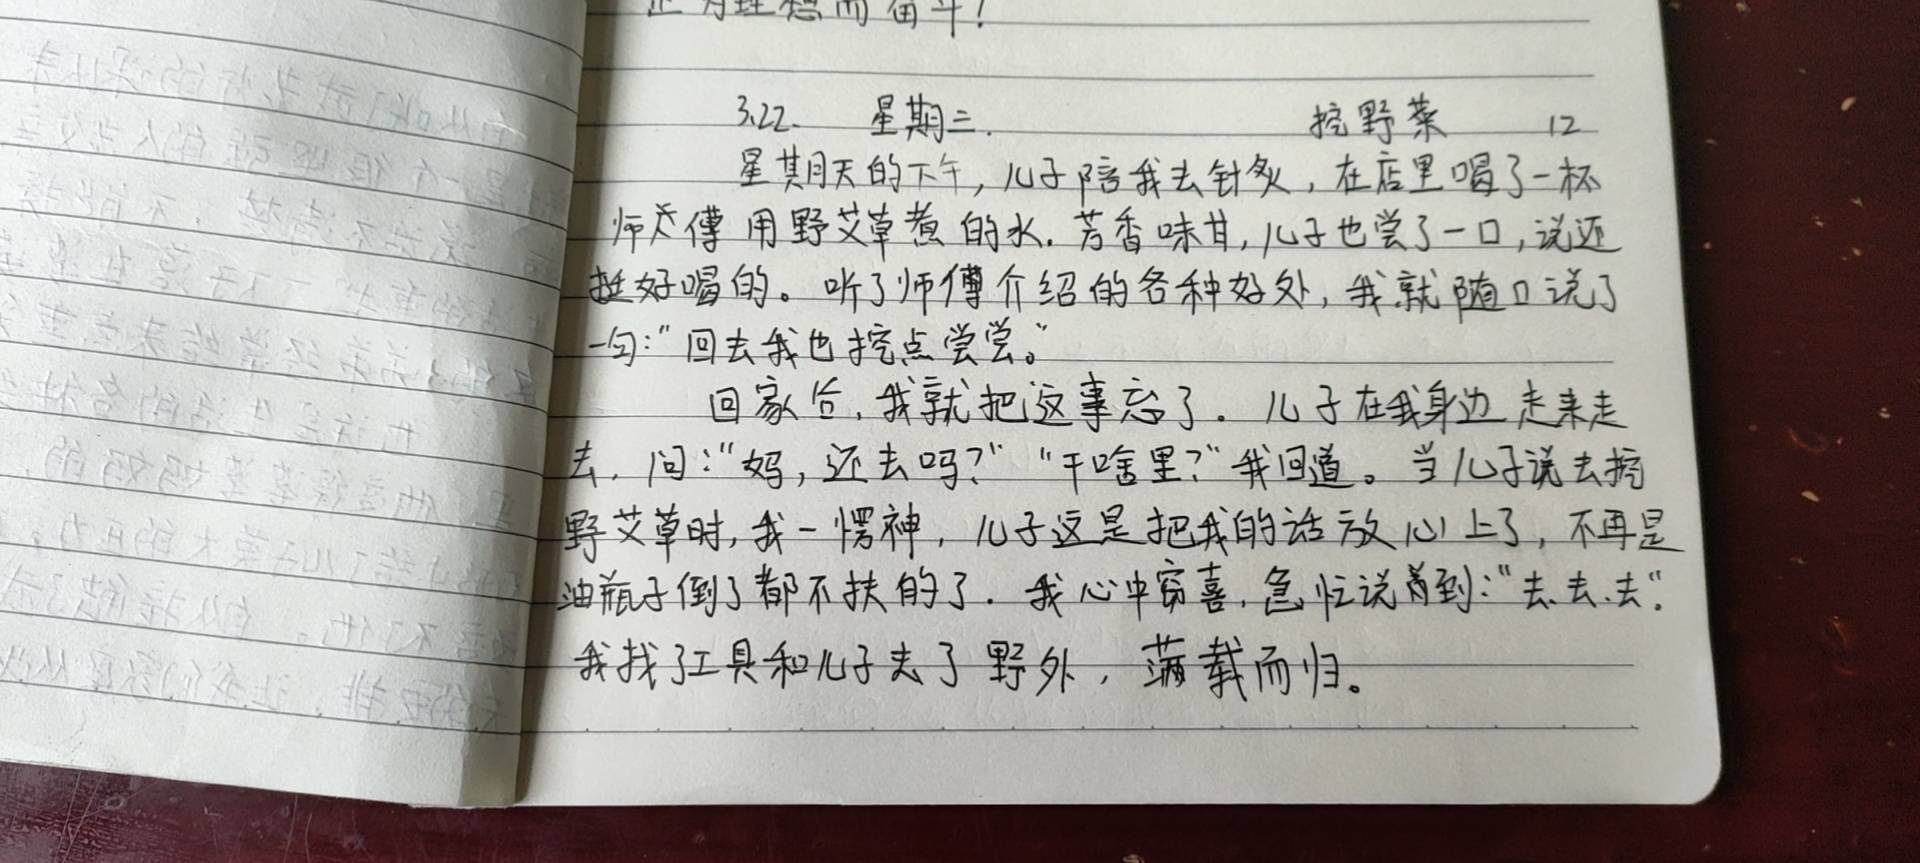 正为理想而奋斗!
3.22. 星期三. 挖野菜 12
星期天的下午,儿子陪我去针灸,在店里喝了一杯
师傅用野艾草煮的水.芳香味甘,儿子也尝了一口,说还
挺好喝的。听了师傅介绍的各种好处,我就随口说了
一句:“回去我也挖点尝尝。”
回家后,我就把这事忘了.儿子在我身边走来走
去,问:“妈,还去吗?”“干啥里?”我回道。当儿子说去挖
野艾草时,我一愣神,儿子这是把我的话放心上了,不再是
油瓶子倒了都不扶的了.我心中窃喜,急忙说着到:“去.去.去”.
我找了工具和儿子去了野外,满载而归。